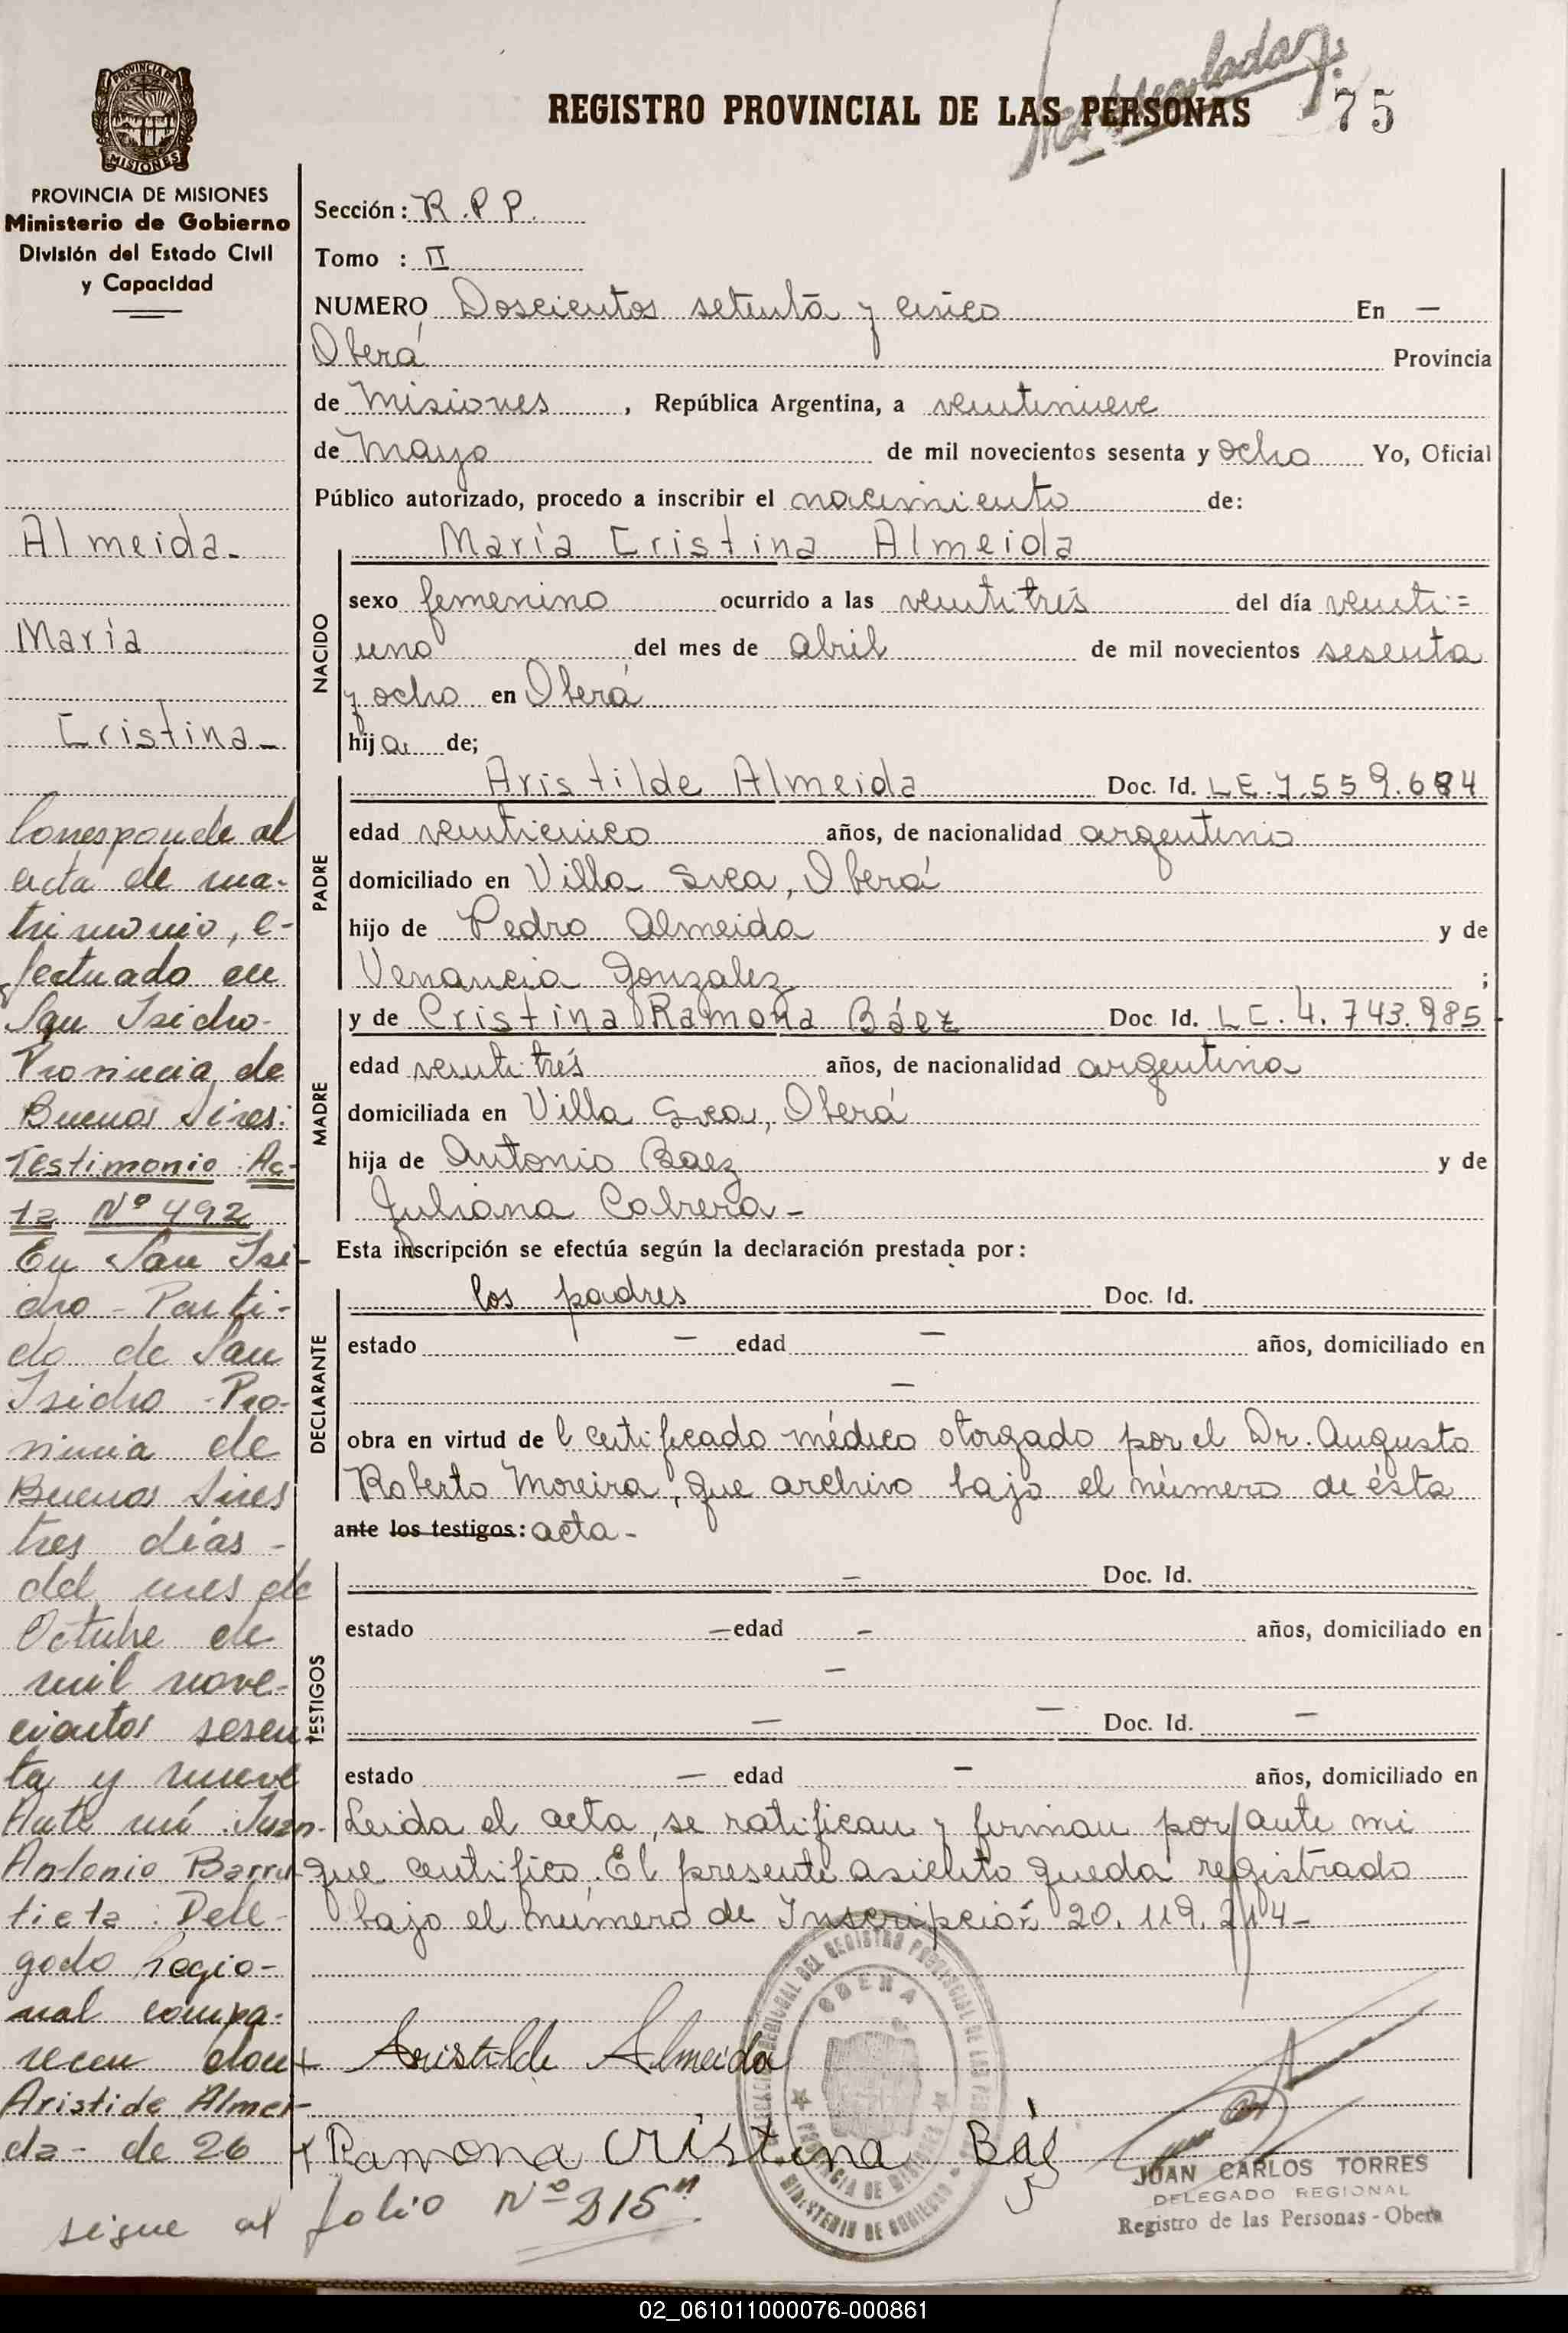 REGISTRO PROVINCIAL DE LAS PERSONAS
75
PROVINCIA DE
MISIONES
PROVINCIA DE MISIONES
Ministerio de Gobierno
División del Estado Civil
y Capacidad
Almeida-
María
Cristina-
Corresponde al
acta de ma-
trimonio, e-
fectuado en
San Isidro-
Provincia de
Buenos Aires:
Testimonio Ac-
ta Nº 492
En San Isi-
dro - Parti-
do de San
Isidro - Pro-
vincia de
Buenos Aires
tres días -
del mes de
Octubre de
mil nove-
cientos sesen
ta y nueve
Ante mí Juan-
Antonio Barru
tieta Dele-
gado Regio-
nal compa-
recen don
Aristide Almei-
da- de 26
sigue al folio Nº 315"
Sección: R.P.P.
Tomo : II
NUMERO Doscientos setenta y cinco En -
Oberá Provincia
de Misiones , República Argentina, a veintinueve
de Mayo de mil novecientos sesenta y ocho Yo, Oficial
Público autorizado, procedo a inscribir el nacimiento de:
NACIDO
María Cristina Almeida
sexo femenino ocurrido a las veintitrés del día veinti=
uno del mes de abril de mil novecientos sesenta
y ocho en Oberá
hija de;
PADRE
Aristilde Almeida Doc. Id. LE.7.559.684
edad veinticinco años, de nacionalidad argentino
domiciliado en Villa Svea, Oberá
hijo de Pedro Almeida y de
Venancia Gonzalez ;
MADRE
y de Cristina Ramona Báez Doc. Id. LC. 4.743.985
edad veintitrés años, de nacionalidad argentina
domiciliada en Villa Svea, Oberá
hija de Antonio Baez y de
Juliana Cabrera-
Esta inscripción se efectúa según la declaración prestada por:
DECLARANTE
los padres Doc. Id.
estado - edad - años, domiciliado en
-
obra en virtud de l certificado médico otorgado por el Dr. Augusto
Roberto Moreira, que archivo bajo el número de ésta
ante los testigos: acta-
TESTIGOS
- Doc. Id.
estado - edad - años, domiciliado en
-
- - Doc. Id. -
estado - edad - años, domiciliado en
Leida el acta, se ratifican y firman por ante mi
que certifico. El presente asiento queda registrado
bajo el número de Inscripción 20.119.214-
+ Aristilde Almeida
+ Ramona Cristina Báez
OBERA
PROVINCIA DE MISIONES
MINISTERIO DE GOBIERNO
JUAN CARLOS TORRES
DELEGADO REGIONAL
Registro de las Personas - Obera
02_061011000076-000861